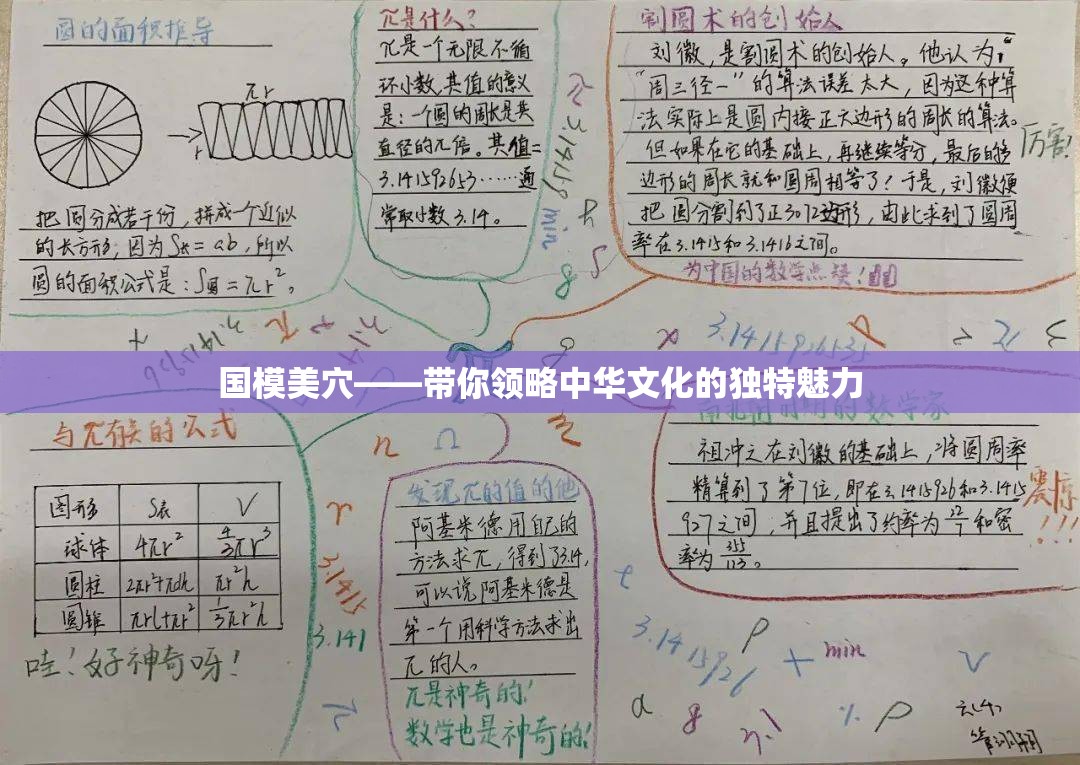 圆的面积推导
πr
r
把圆分成若干份，拼成一个近似
的长方形；因为S长=ab，所以
圆的面积公式是：S圆=πr²。
π是什么？
π是一个无限不循
环小数，其值的意义
是：一个圆的周长是其
直径的π倍。其值=
3.141592653……通
常取小数3.14。
割圆术的创始人
刘徽，是割圆术的创始人。他认为
“周三径一”的算法误差太大，因为这种算
法实际上是圆内接正六边形的周长的算法。
但如果在它的基础上，再继续等分，最后的多
边形的周长就和圆周相等了！于是，刘徽便
把圆分割到了正3072边形，由此求到了圆周
率在3.1415和3.1416之间。
厉害！
为中国的数学点赞！
π 3.14159 min
3.1415926535
国模美穴——带你领略中华文化的独特魅力
与π有关的公式
图形 S表 V
球体 4πr² 4/3πr³
圆柱 2πr²+πdh πr²h
圆锥 πrl+πr² 1/3πr²h
哇！好神奇呀！
r
3.1415
3.141
π
n Ω
发现π的值的他
阿基米德用自己的
方法求π，得到了3.14，
可以说阿基米德是
第一个用科学方法求出
π的人。
π是神奇的！
数学也是神奇的！
的数学家
祖冲之在刘徽的基础上，将圆周率
精算到了第7位，即在3.1415926和3.1415
927之间，并且提出了约率为22/7和密
率为355/113。
震惊！！！
t
3.1415926
ρ + min V
a 8 % ρ